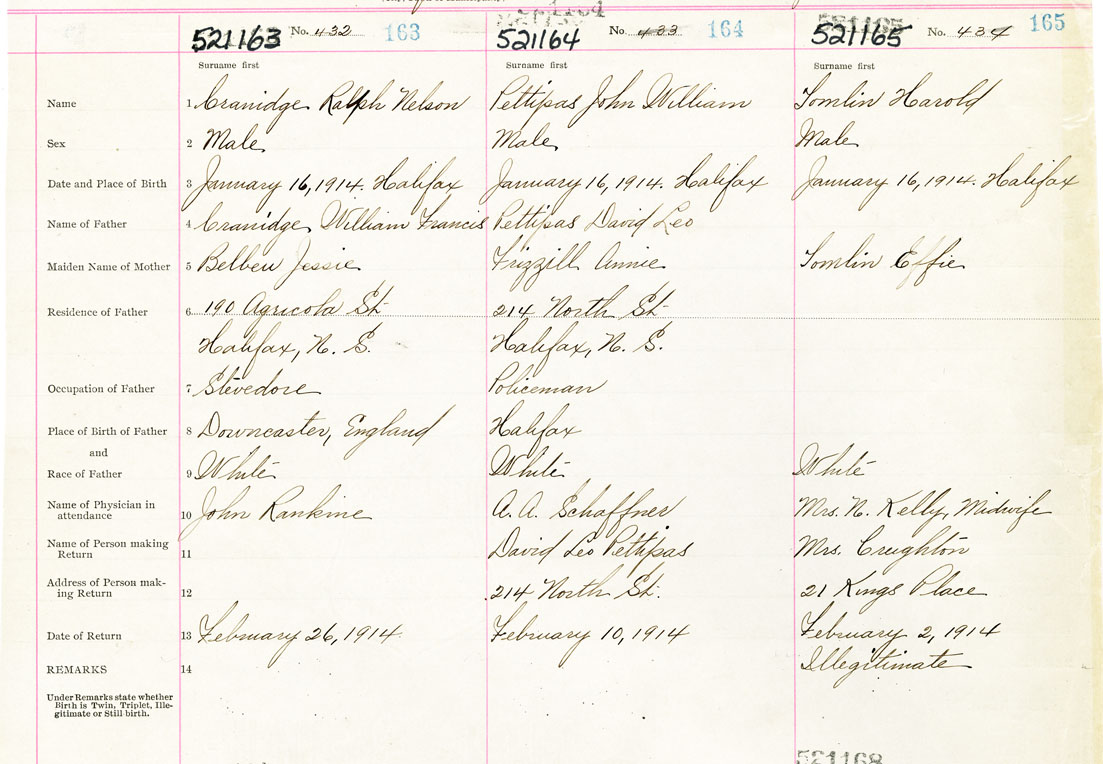 521163 No. 432 163 521164 No. 433 164 521165 No. 434 165
Surname first Surname first Surname first
Name 1 Cranidge Ralph Nelson Pettipas John William Tomlin Harold
Sex 2 Male Male Male
Date and Place of Birth 3 January 16, 1914. Halifax January 16, 1914. Halifax January 16, 1914. Halifax
Name of Father 4 Cranidge, William Francis Pettipas David Leo
Maiden Name of Mother 5 Belben Jessie Frizzill Annie Tomlin Effie
Residence of Father 6 190 Agricola St. 214 North St.
Halifax, N. S. Halifax, N. S.
Occupation of Father 7 Stevedore Policeman
Place of Birth of Father 8 Downcaster, England Halifax
and
Race of Father 9 White White White
Name of Physician in
attendance 10 John Rankine A. A. Schaffner Mrs. N. Kelly, Midwife
Name of Person making
Return 11 David Leo Pettipas Mrs. Creighton
Address of Person mak-
ing Return 12 214 North St. 21 Kings Place
Date of Return 13 February 26, 1914 February 10, 1914 February 2, 1914
REMARKS 14 Illegitimate
Under Remarks state whether
Birth is Twin, Triplet, Ille-
gitimate or Still-birth.
521168